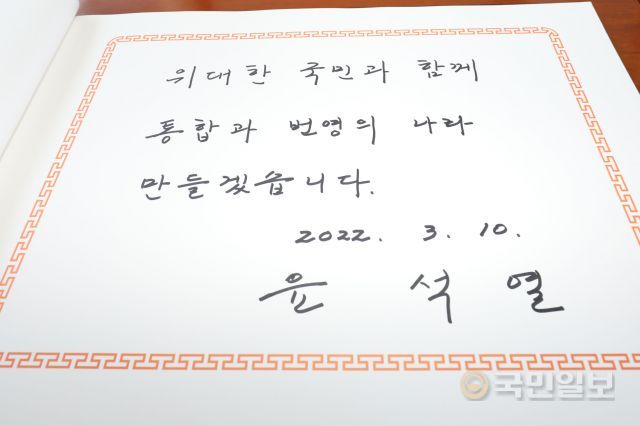 위대한 국민과 함께
통합과 번영의 나라
만들겠습니다.
2022. 3. 10.
윤 석 열
국민일보